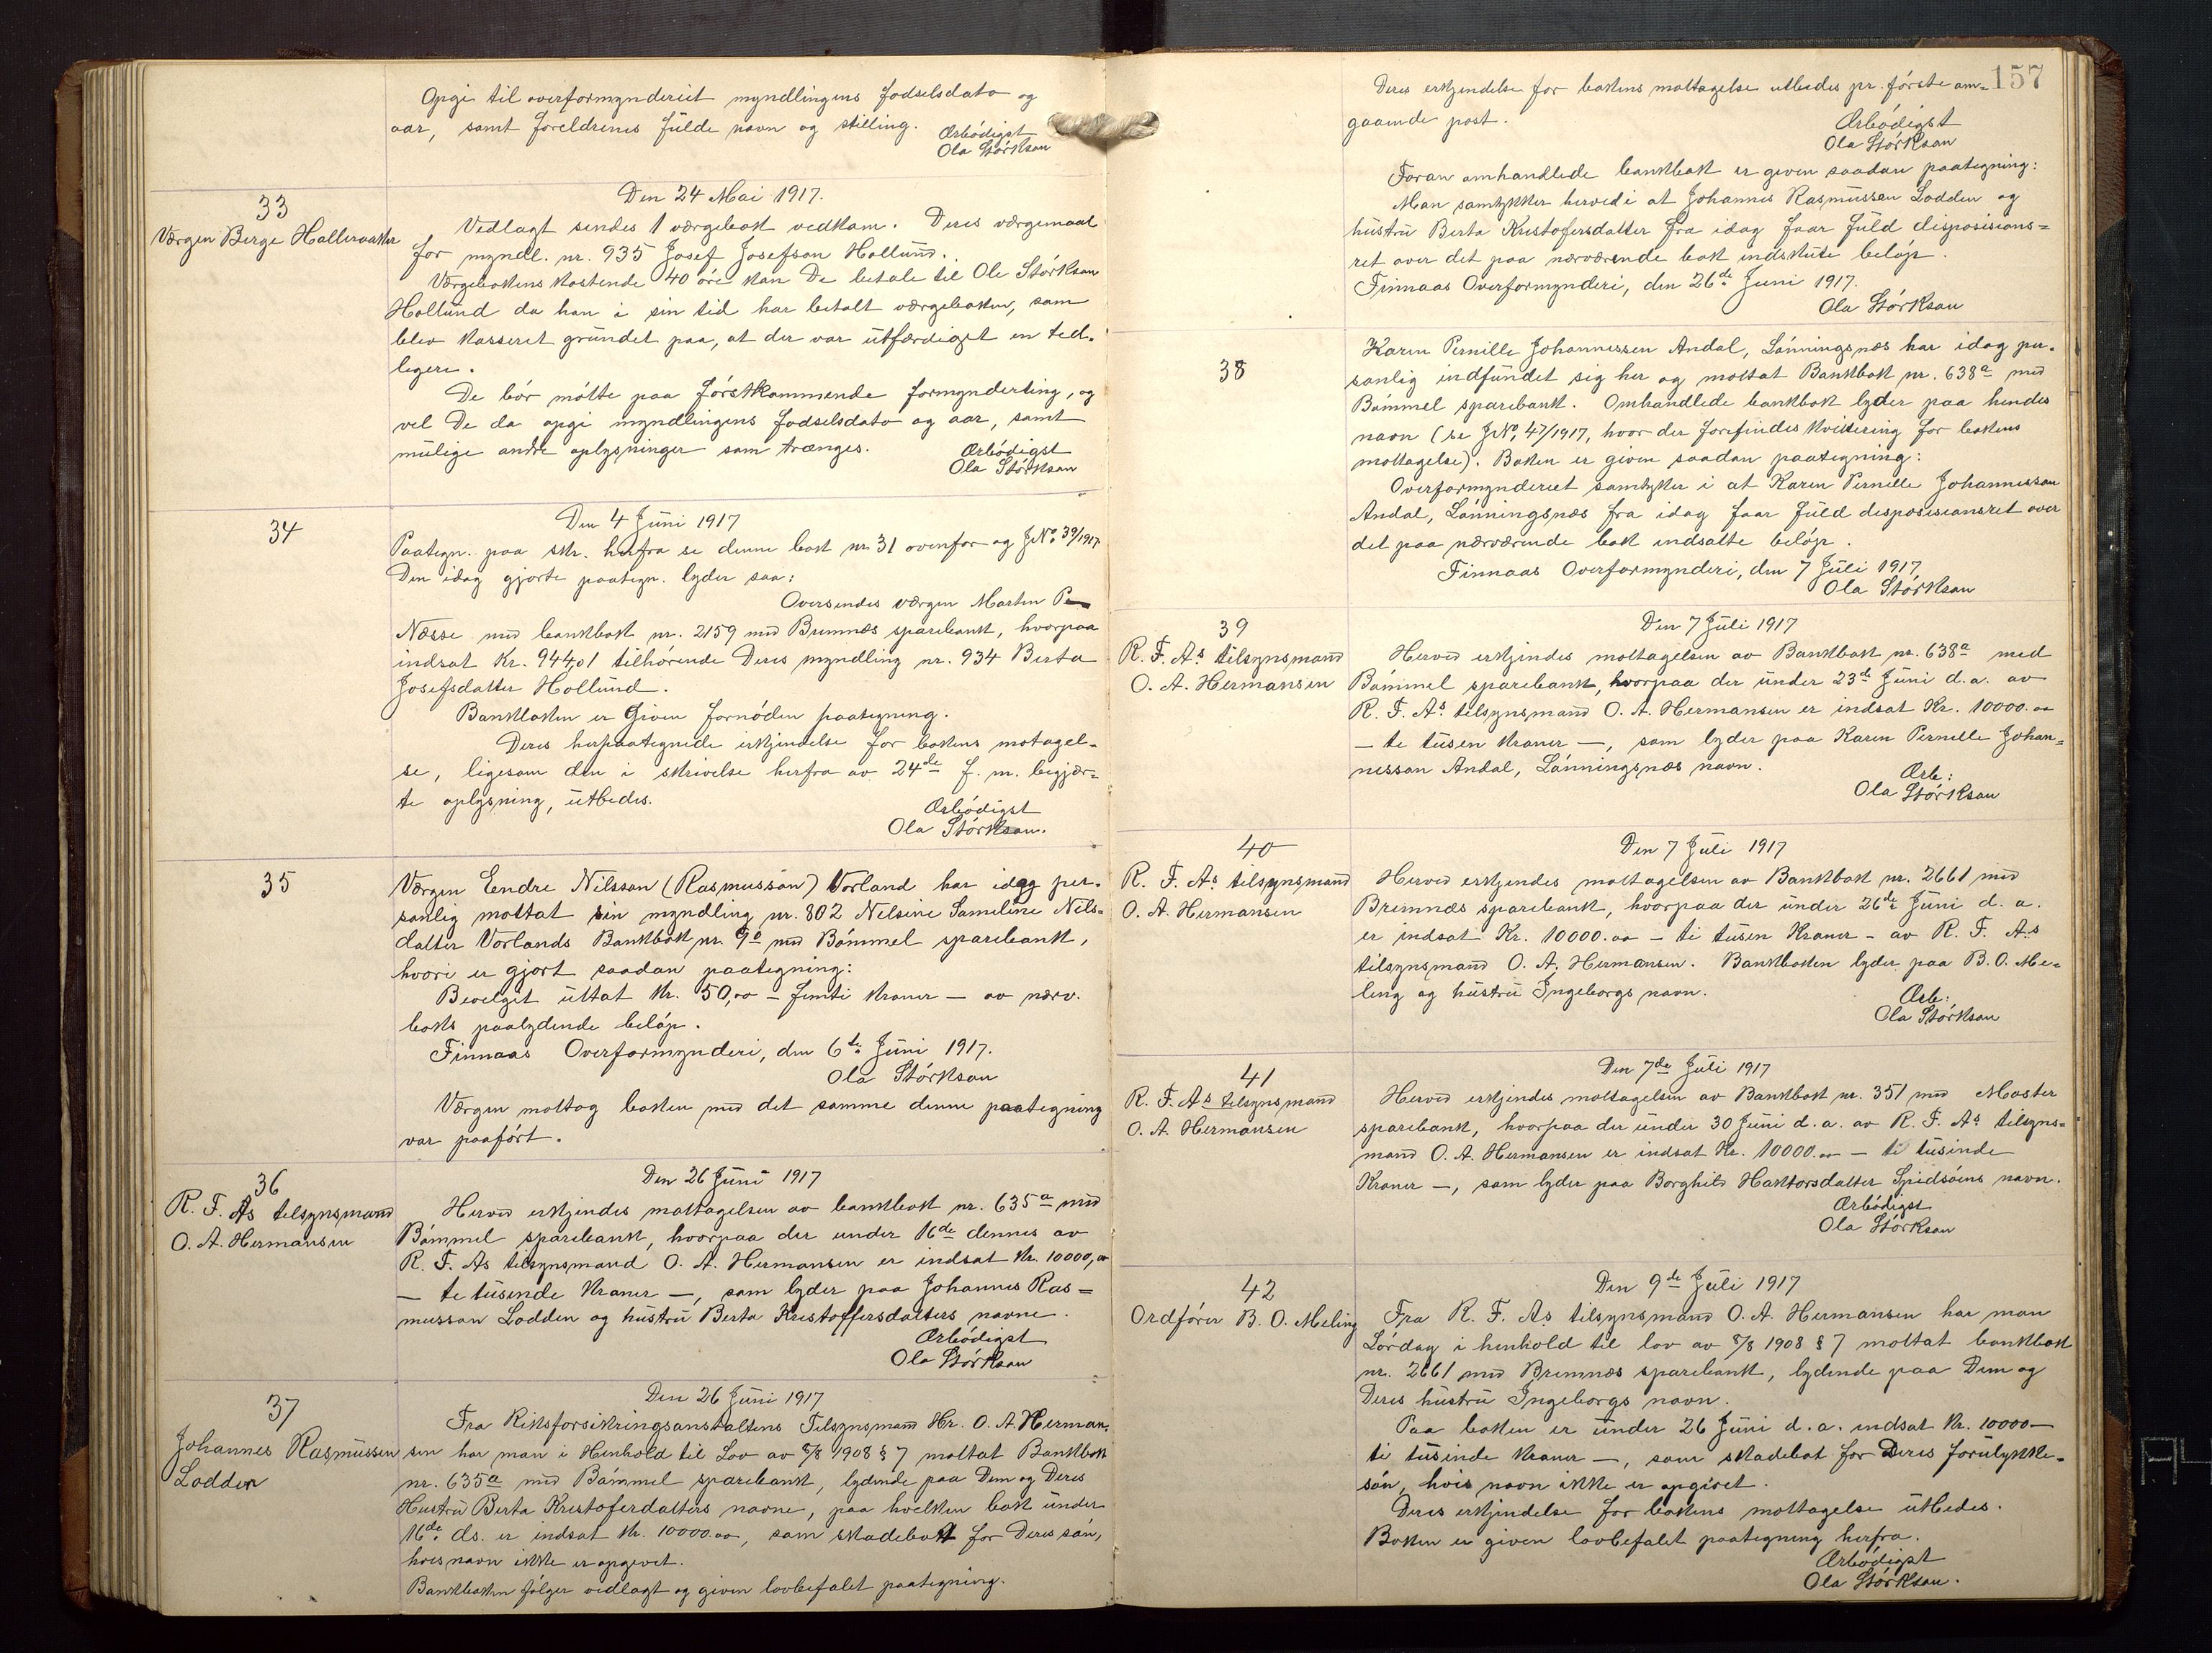 Opgi til overformynderiet myndlingens fødselsdato og
aar, samt foreldrenes fulde navn og stilling.
Ærbødigst
Ola Størkson
33
Værgen Berge Halleraaker
Den 24 Mai 1917.
Vedlagt sendes 1 værgebok vedkom. Deres værgemaal
for myndl. nr. 935 Josef Josefson Hollund.
Værgebokens kostende 40 øre kan De betale til Ole Størkson
Hollund da han i sin tid har betalt værgeboken, som
blev kasseret grundet paa, at der var utfærdiget en tid-
ligere.
De bør møtte paa førstkommende formynderting, og
vel De da opgi myndlingens fødselsdato og aar, samt
mulige andre oplysninger som trænges.
Ærbødigst
Ola Størkson
34
Den 4 Juni 1917
Paategn. paa skr. herfra se denne bok nr. 31 ovenfor og JNo. 39/1917
Den idag gjorte paategn. lyder saa:
Oversendes værgen Martin P
Næsse med bankbok nr. 2159 med Bremnæs sparebank, hvorpaa
indsat Kr. 944,01 tilhørende Deres myndling nr. 934 Berta
Josefsdatter Hollund.
Bankboken er given fornøden paategning.
Deres herpaategnede erkjendelse for bokens motagel-
se, ligesom den i skrivelse herfra av 24de f. m. begjær-
te oplysning, utbedes.
Ærbødigst
Ola Størkson.
35
Værgen Endre Nilsson (Rasmusson) Vorland har idag per-
sonlig mottat sin myndling nr. 802 Nelsine Sameline Nels-
datter Vorlands Bankbok nr. 9a med Bømmel sparebank,
hvori er gjort saadan paategning:
Bevelget uttat Kr. 50,00 – femti kroner – av nærv.
boks paalydende beløp.
Finnaas Overformynderi, den 6te Juni 1917.
Ola Størkson
Værgen mottog boken med det samme denne paategning
var paaført.
36
R. F. As tilsynsmand
O. A. Hermansen
Den 26 Juni 1917
Herved erkjendes mottagelsen av bankbok nr. 635a med
Bømmel sparebank, hvorpaa der under 16de dennes av
R. F. As tilsynsmand O. A. Hermansen er indsat Kr. 10000,00
– ti tusinde kroner –, som lyder paa Johannes Ras=
musson Lodden og hustru Berta Kristoffersdatters navne.
Ærbødigst
Ola Størkson
37
Johannes Rasmussen
Lodden
Den 26 Juni 1917
Fra Riksforsikringsanstaltens Tilsynsmand Hr. O. A. Herman-
sen har man i Henhold til Lov av 8/8 1908 § 7 mottat Bankbok
nr. 635a med Bømmel sparebank, lydende paa Dem og Deres
Hustru Berta Kristoferdatters navne, paa hvilken bok under
16de ds. er indsat Kr. 10000.00, som skadebot for Deres søn,
hvis navn ikke er opgivet.
Bankboken følger vedlagt og given lovbefalet paategning.
157
Deres erkjendelse for bokens mottagelse utbedes pr. første om-
gaaende post.
Ærbødigst
Ola Størkson
Foran omhandlede bankbok er given saadan paategning:
Man samtykker herved i at Johannes Rasmussen Lodden og
hustru Berta Kristofersdatter fra idag faar fuld disposisions=
ret over det paa nærværende bok indskute beløp.
Finnaas Overformynderi, den 26de Juni 1917.
Ola Størkson
38
Karen Pernille Johannessen Andal, Lønningsnæs har idag per-
sonlig indfundet sig her og mottat Bankbok nr. 638a med
Bømmel sparebank. Omhandlede bankbok lyder paa hendes
navn (se JNo. 47/1917, hvor der forefindes kvittering for bokens
mottagelse). Boken er given saadan paategning:
Overformynderiet samtykker i at Karen Pernille Johannesson
Andal, Lønningsnæs fra idag faar fuld disposisionsret over
det paa nærværende bok indsatte beløp.
Finnaas Overformynderi, den 7 Juli 1917
Ola Størkson
39
R. F. As tilsynsmand
O. A. Hermansen
Den 7 Juli 1917
Herved erkjendes mottagelsen av Bankbok nr. 638a med
Bømmel sparebank, hvorpaa der under 23de Juni d. a. av
R. F. As tilsynsmand O. A. Hermansen er indsat Kr. 10000.00
– ti tusen kroner –, som lyder paa Karen Pernelle Johan=
nesson Andal, Lønningsnæs navn.
Ærb:
Ola Størkson
40
R. F. As tilsynsmand
O. A. Hermansen
Den 7 Juli 1917
Herved erkjendes mottagelsen av Bankbok nr. 2661 med
Bremnæs sparebank, hvorpaa der under 26de Juni d. a.
er indsat Kr. 10000.00 – ti tusen Kroner – av R. F. As
tilsynsmand O. A. Hermansen. Bankboken lyder paa B. O. Me-
ling og hustru Ingeborgs navn.
Ærb:
Ola Størkson
41
R. F. As tilsynsmand
O. A. Hermansen
Den 7de Juli 1917
Herved erkjendes mottagelsen av Bankbok nr. 351 med Moster
sparebank, hvorpaa der under 30 Juni d. a. av R. F. As tilsyns=
mand O. A. Hermansen er indsat Kr. 10000.00 – ti tusinde
Kroner –, som lyder paa Borghild Haktorsdatter Spidsøens navn.
Ærbødigst
Ola Størkson
42
Ordfører B. O. Meling
Den 9de Juli 1917
Fra R. F. As tilsynsmand O. A. Hermansen har man
Lørdag i henhold til lov av 8/8 1908 § 7 mottat bankbok
nr. 2661 med Bremnæs sparebank, lydende paa Dem og
Deres hustru Ingeborgs navn.
Paa boken er under 26 Juni d. a. indsat Kr. 10000 –
ti tusinde kroner –, som skadebot for Deres forulykke-
søn, hvis navn ikke er opgivet.
Deres erkjendelse for bokens mottagelse utbedes.
Boken er given lovbefalet paategning herfra.
Ærbødigst
Ola Størkson.